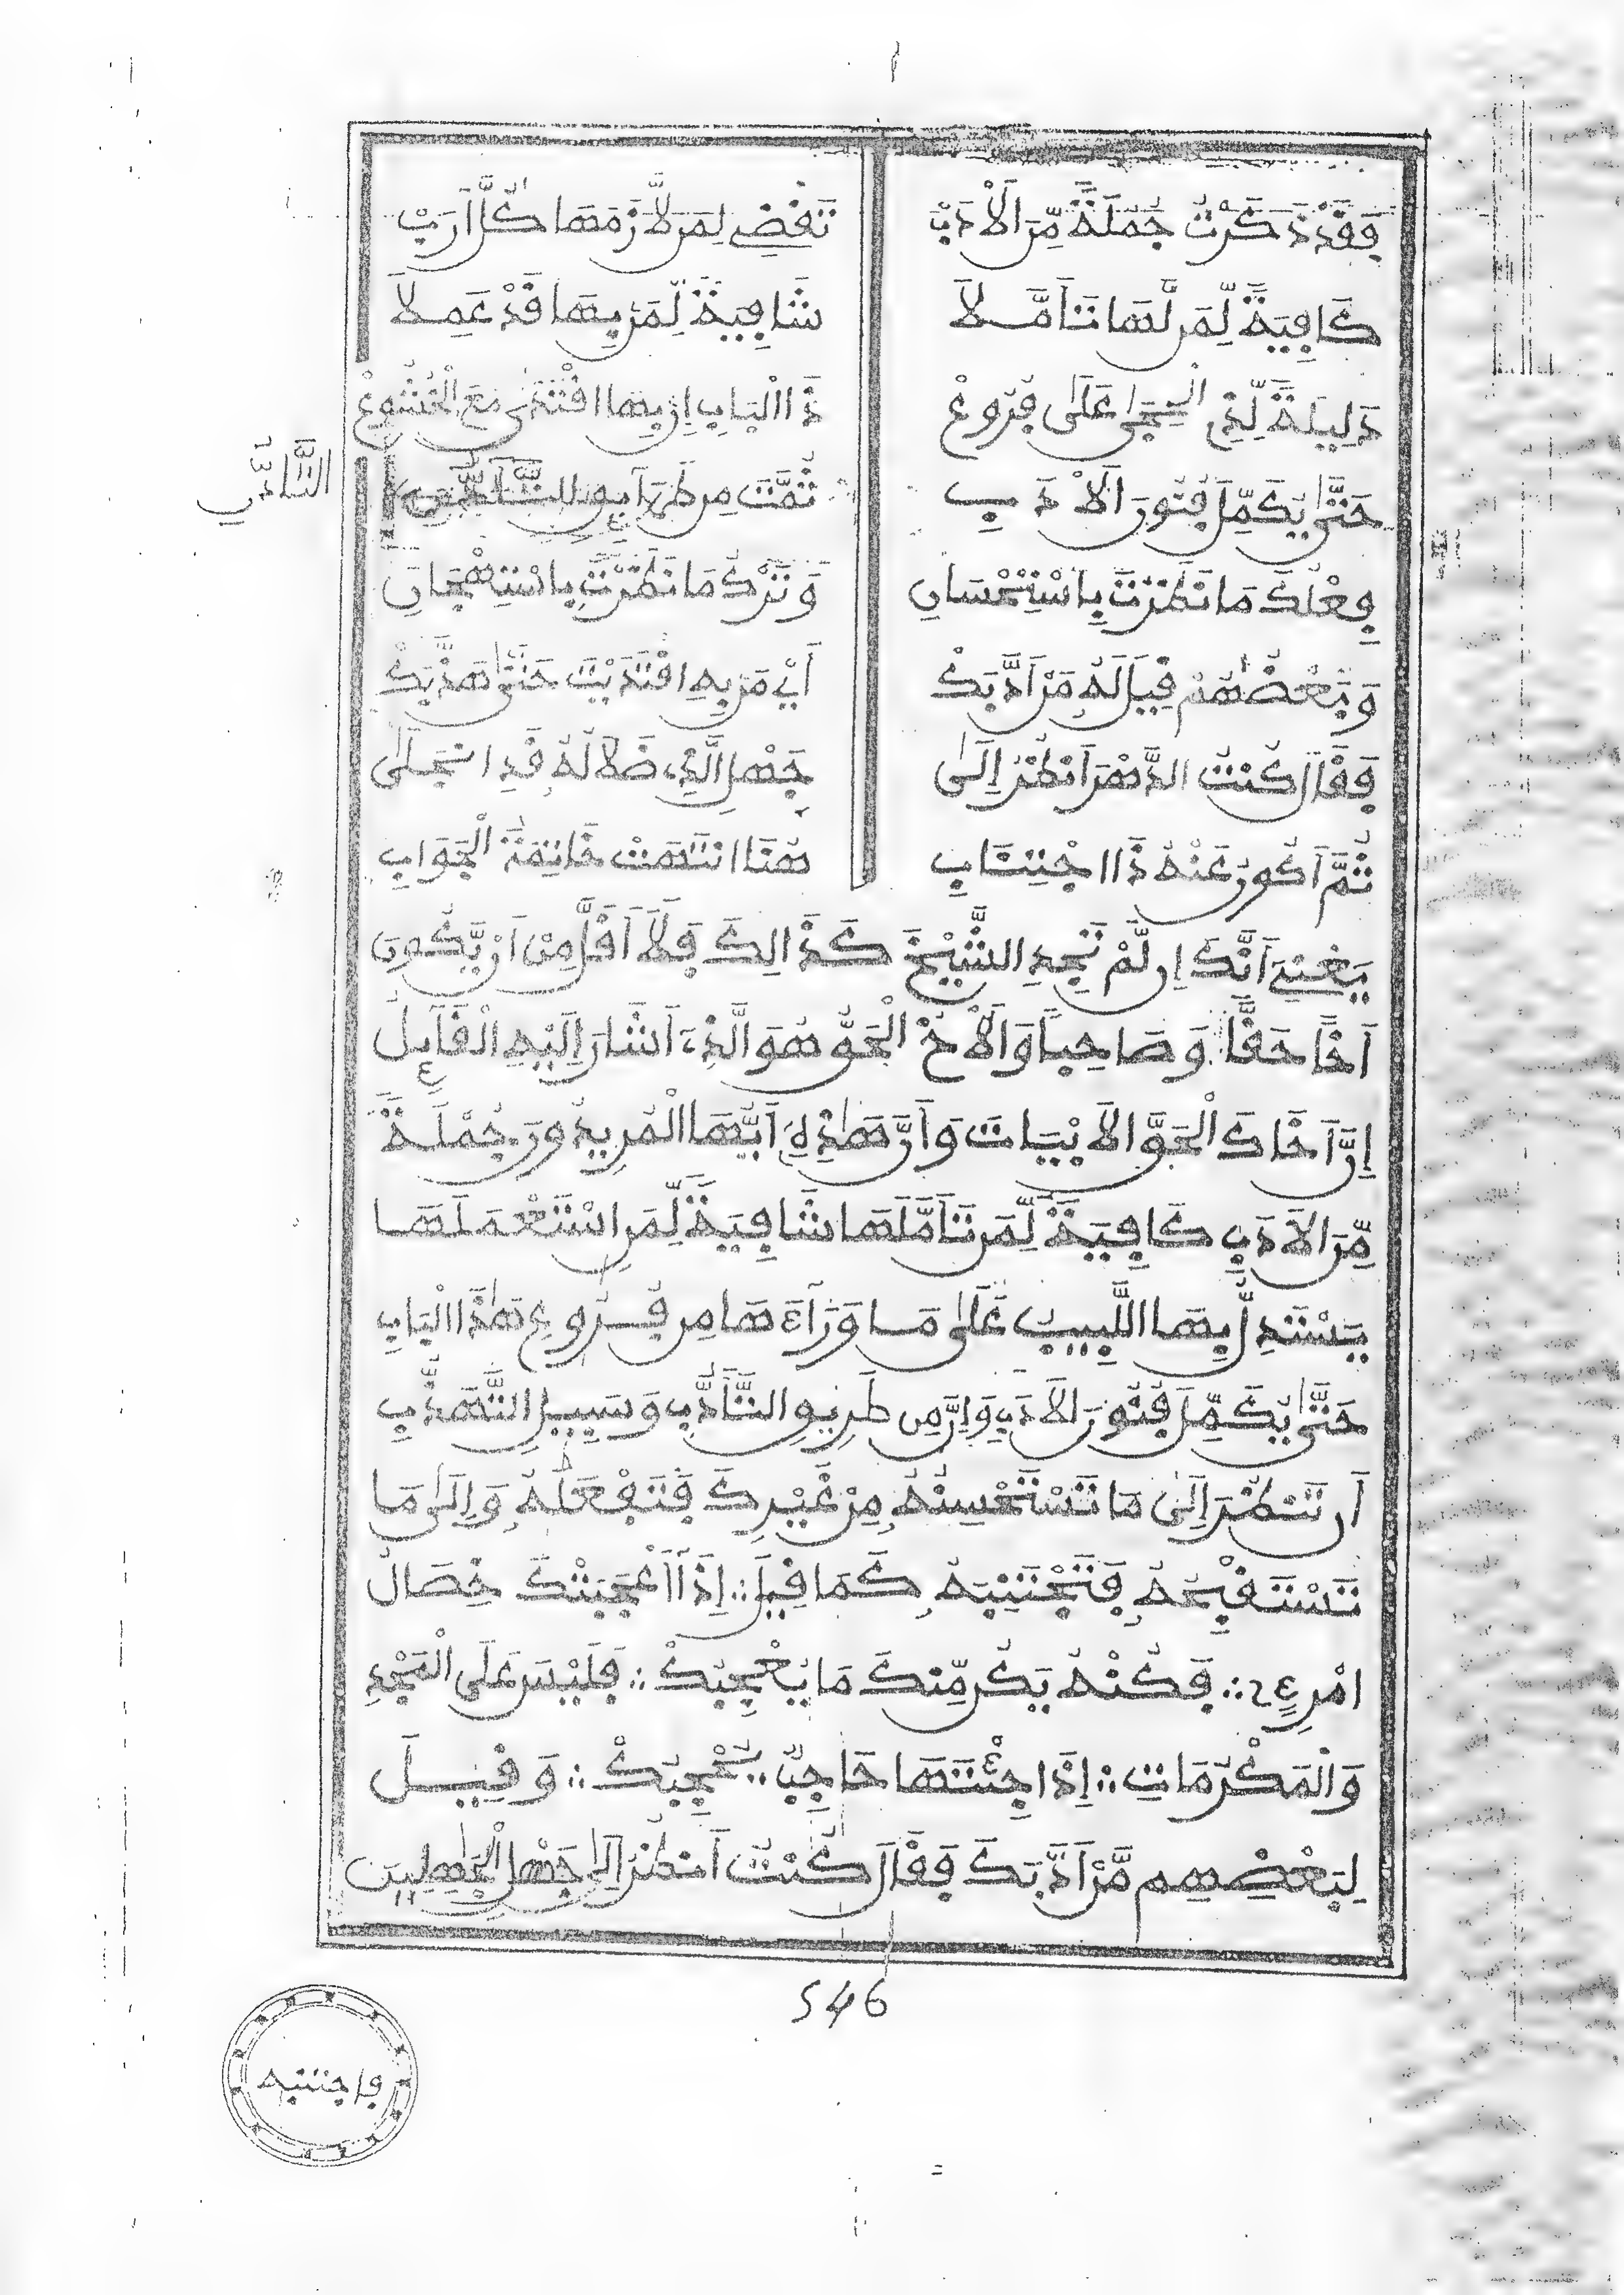 فَقَدْ ذَكَرْتُ جُمْلَةً مِّنَ الْأَدَبْ تَقْضِي لِمَن لَّازَمَهَا كُلَّ أَرَبْ
كَافِيَةً لِّمَن لَّهَا تَأَمَّلَا شَافِيَةً لِّمَنْ بِهَا قَدْ عَمِلَا
دَلِيلَةً لِّذِي الْحِجَى عَلَى فُرُوعْ ذَا الْبَابِ إِنْ بِهَا اقْتَدَى مَعَ الْخُشُوعْ
حَتَّى يُكَمِّلَ فُنُونَ الْأَدَبِ ثُمَّتَ مِن طَرَائِقِ التَّأَدُّبِ
التَّأَدُّبِ
فِعْلُكَ مَا نَظَرْتَ بِاسْتِحْسَانِ وَتَرْكُ مَا نَظَرْتَ بِاسْتِهْجَانِ
وَبَعْضُهُمْ قِيلَ لَهُ مَنْ أَدَّبَكْ أَيْ مَنْ بِهِ اقْتَدَيْتَ حَتَّى هَذَّبَكْ
فَقَالَ كُنْتُ الدَّهْرَ أَنْظُرُ إِلَى جَهْلِ الَّذِي ضَلَالُهُ قَدِ انْجَلَى
ثُمَّ أَكُونُ عَنْهُ ذَا اجْتِنَابِ هُنَا انْتَهَتْ خَاتِمَةُ الْجَوَابِ
يَعْنِي أَنَّكَ إِن لَّمْ تَجِدِ الشَّيْخَ كَذَالِكَ فَلَا أَقَلَّ مِنْ أَنْ يَّكُونَ
أَخًا حَقًّا وَصَاحِبًا وَالْأَخُ الْحَقُّ هُوَ الَّذِي أَشَارَ إِلَيْهِ الْقَائِلُ
إِنَّ أَخَاكَ الْحَقَّ الْأَبْيَاتَ وَأَنَّ هَذِهِ أَيُّهَا الْمُرِيدُونَ جُمْلَةً
مِّنَ الْأَدَبِ كَافِيَةً لِّمَن تَأَمَّلَهَا شَافِيَةً لِّمَنِ اسْتَعْمَلَهَا
يَسْتَدِلُّ بِهَا اللَّبِيبُ عَلَى مَا وَرَاءَهَا مِن فُرُوعِ هَذَا الْبَابِ
حَتَّى يُكَمِّلَ فُنُونَ الْأَدَبِ وَإِنَّ مِن طَرِيقِ التَّأَدُّبِ وَسَبِيلِ التَّهَذُّبِ
أَن تَنظُرَ إِلَى مَا تَسْتَحْسِنُهُ مِنْ غَيْرِكَ فَتَفْعَلَهُ وَإِلَى مَا
تَسْتَقْبِحُهُ فَتَجْتَنِبَهُ كَمَا قِيلَ ∴ إِذَا أَعْجَبَتْكَ خِصَالُ
امْرِئٍ ∴ فَكُنْهُ يَكُن مِّنكَ مَا يُعْجِبُكْ ∴ فَلَيْسَ عَلَى الْمَجْدِ
وَالْمَكْرُمَاتِ ∴ إِذَا جِئْتَهَا حَاجِبٌ يَحْجُبُكْ ∴ وَقِيلَ
لِبَعْضِهِم مَّنْ أَدَّبَكَ فَقَالَ كُنْتُ أَنظُرُ إِلَى جَهْلِ الْجَاهِلِينَ
546
فاجتنبه